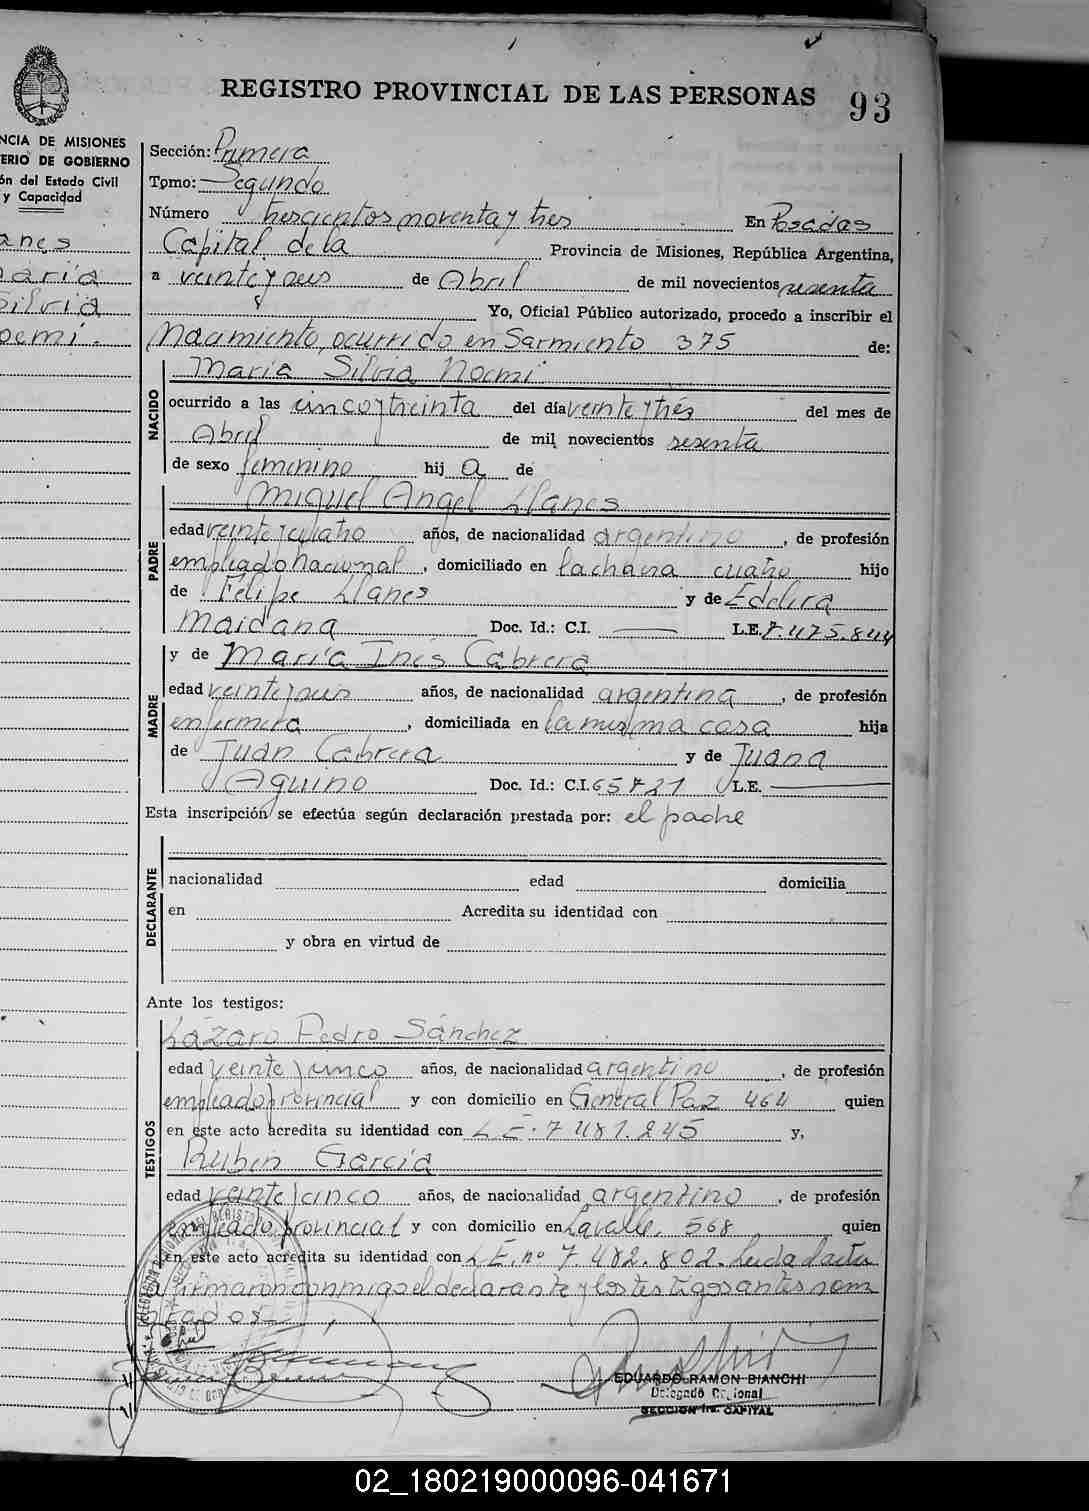 REGISTRO PROVINCIAL DE LAS PERSONAS 93
NCIA DE MISIONES
ERIO DE GOBIERNO
ón del Estado Civil
y Capacidad
anes
aría
Silvia
oemi.
Sección: Primera
Tomo: Segundo
Número trescientos noventa y tres En Posadas
Capital de la Provincia de Misiones, República Argentina,
a veinte y seis de Abril de mil novecientos sesenta
Yo, Oficial Público autorizado, procedo a inscribir el
Nacimiento, ocurrido en Sarmiento 375 de:
NACIDO
María Silvia Noemi
ocurrido a las cinco y treinta del día veinte y trés del mes de
Abril de mil novecientos sesenta
de sexo femenino hij a de
PADRE
Miguel Angel Llanes
edad veinte y cuatro años, de nacionalidad argentino, de profesión
empleado nacional, domiciliado en la chacra cuatro hijo
de Felipe Llanes y de Edelira
Maidana Doc. Id.: C.I. L.E. 7.475.844
MADRE
y de María Inés Cabrera
edad veinte y seis años, de nacionalidad argentina, de profesión
enfermera, domiciliada en la misma casa hija
de Juan Cabrera y de Juana
Aquino Doc. Id.: C.I. 65721 L.E.
Esta inscripción se efectúa según declaración prestada por: el padre
DECLARANTE
nacionalidad edad domicilia
en Acredita su identidad con
y obra en virtud de
Ante los testigos:
TESTIGOS
Lázaro Pedro Sánchez
edad veinte y cinco años, de nacionalidad argentino, de profesión
empleado provincial y con domicilio en General Paz 464 quien
en este acto acredita su identidad con L.E. 7.481.245 y,
Rubén García
edad veinte y cinco años, de nacionalidad argentino, de profesión
empleado provincial y con domicilio en Lavalle, 568 quien
en este acto acredita su identidad con L.E. nº 7.482.802. Leida el acta
firmaron conmigo el declarante y los testigos antes nom
brados
EDUARDO RAMON BIANCHI
Delegado Regional
SECCION 1ra. CAPITAL
02_180219000096-041671